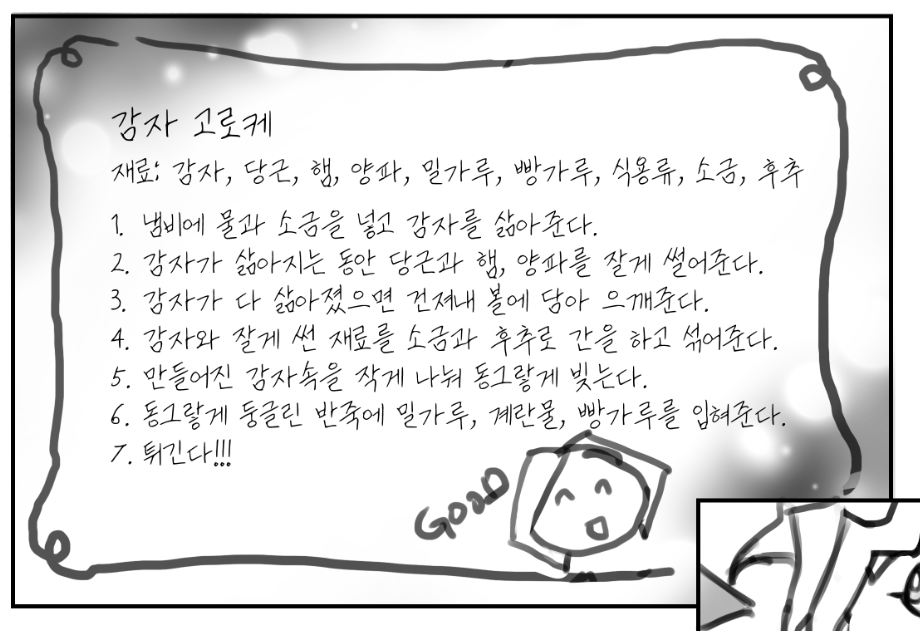 감자 고로케
재료: 감자, 당근, 햄, 양파, 밀가루, 빵가루, 식용류, 소금, 후추
1. 냄비에 물과 소금을 넣고 감자를 삶아준다.
2. 감자가 삶아지는 동안 당근과 햄, 양파를 잘게 썰어준다.
3. 감자가 다 삶아졌으면 건져내 볼에 담아 으깨준다.
4. 감자와 잘게 썬 재료를 소금과 후추로 간을 하고 섞어준다.
5. 만들어진 감자속을 작게 나눠 동그랗게 빚는다.
6. 동그랗게 둥글린 반죽에 밀가루, 계란물, 빵가루를 입혀준다.
7. 튀긴다!!!
GooD